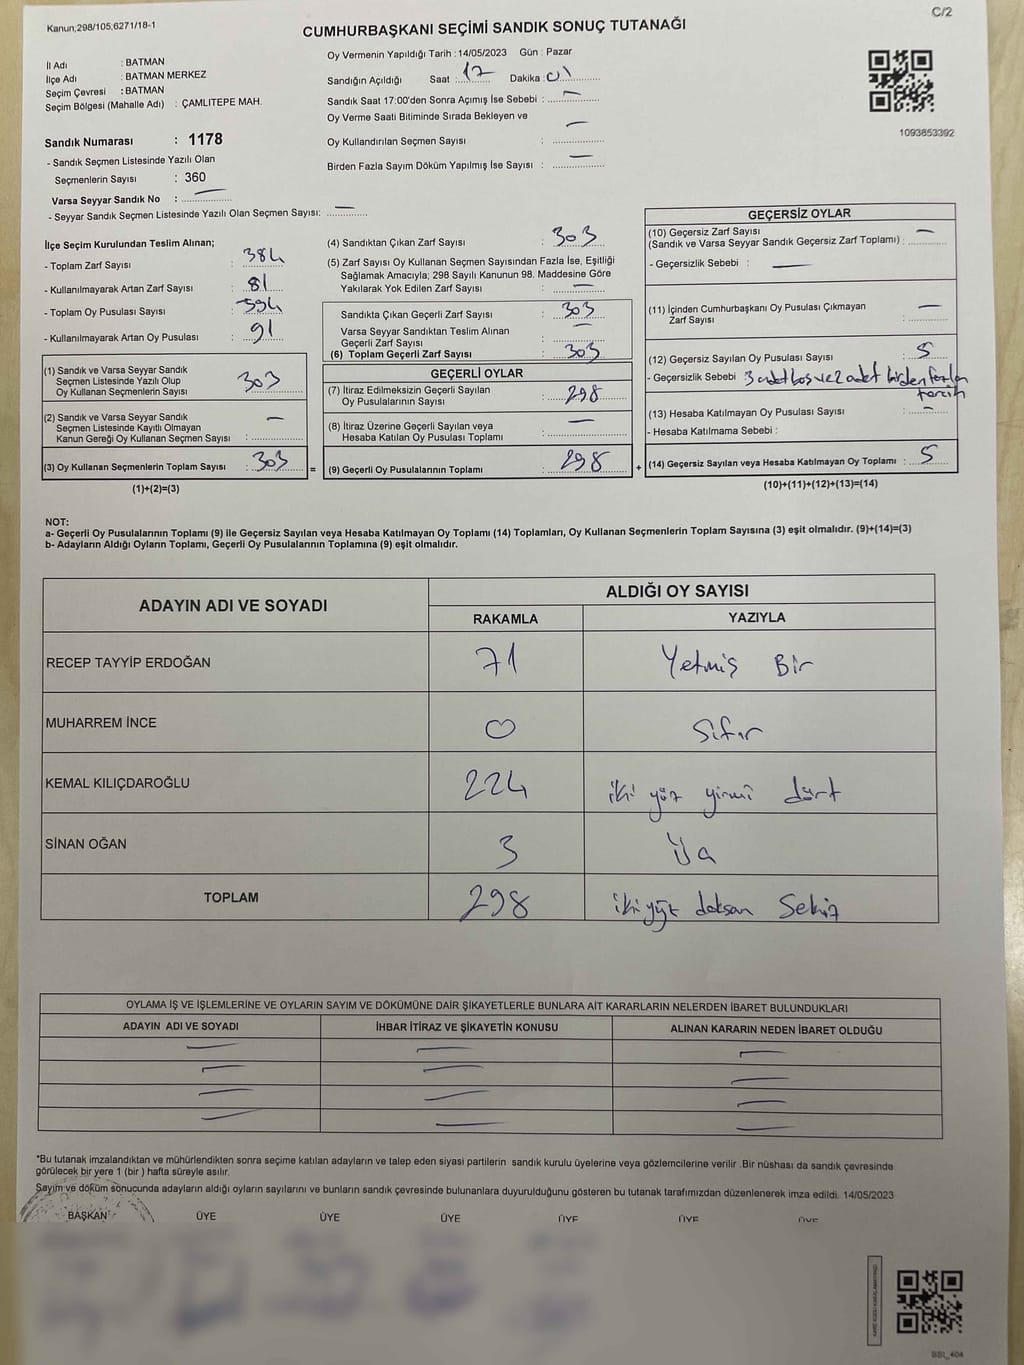 Kanun,298/105,6271/18-1
C/2
CUMHURBAŞKANI SEÇİMİ SANDIK SONUÇ TUTANAĞI
İl Adı : BATMAN
İlçe Adı : BATMAN MERKEZ
Seçim Çevresi : BATMAN
Seçim Bölgesi (Mahalle Adı) : ÇAMLITEPE MAH.
Sandık Numarası : 1178
- Sandık Seçmen Listesinde Yazılı Olan
Seçmenlerin Sayısı : 360
Varsa Seyyar Sandık No : —
- Seyyar Sandık Seçmen Listesinde Yazılı Olan Seçmen Sayısı: —
Oy Vermenin Yapıldığı Tarih : 14/05/2023 Gün : Pazar
Sandığın Açıldığı Saat : 17 Dakika : 01
Sandık Saat 17:00'den Sonra Açımış İse Sebebi : —
Oy Verme Saati Bitiminde Sırada Bekleyen ve
Oy Kullandırılan Seçmen Sayısı : —
Birden Fazla Sayım Döküm Yapılmış İse Sayısı : —
1093853392
İlçe Seçim Kurulundan Teslim Alınan;
- Toplam Zarf Sayısı : 384
- Kullanılmayarak Artan Zarf Sayısı : 81
- Toplam Oy Pusulası Sayısı : 394
- Kullanılmayarak Artan Oy Pusulası : 91
(1) Sandık ve Varsa Seyyar Sandık
Seçmen Listesinde Yazılı Olup
Oy Kullanan Seçmenlerin Sayısı 303
(2) Sandık ve Varsa Seyyar Sandık
Seçmen Listesinde Kayıtlı Olmayan
Kanun Gereği Oy Kullanan Seçmen Sayısı : —
(3) Oy Kullanan Seçmenlerin Toplam Sayısı : 303 =
(1)+(2)=(3)
(4) Sandıktan Çıkan Zarf Sayısı : 303
(5) Zarf Sayısı Oy Kullanan Seçmen Sayısından Fazla İse, Eşitliği
Sağlamak Amacıyla; 298 Sayılı Kanunun 98. Maddesine Göre
Yakılarak Yok Edilen Zarf Sayısı : —
Sandıkta Çıkan Geçerli Zarf Sayısı : 303
Varsa Seyyar Sandıktan Teslim Alınan
Geçerli Zarf Sayısı : —
(6) Toplam Geçerli Zarf Sayısı : 303
GEÇERLİ OYLAR
(7) İtiraz Edilmeksizin Geçerli Sayılan
Oy Pusulalarının Sayısı : 298
(8) İtiraz Üzerine Geçerli Sayılan veya
Hesaba Katılan Oy Pusulası Toplamı : —
(9) Geçerli Oy Pusulalarının Toplamı : 298 +
GEÇERSİZ OYLAR
(10) Geçersiz Zarf Sayısı
(Sandık ve Varsa Seyyar Sandık Geçersiz Zarf Toplamı) : —
- Geçersizlik Sebebi : —
(11) İçinden Cumhurbaşkanı Oy Pusulası Çıkmayan
Zarf Sayısı : —
(12) Geçersiz Sayılan Oy Pusulası Sayısı : 5
- Geçersizlik Sebebi 3 adet boş ve 2 adet birden fazla
tercih
(13) Hesaba Katılmayan Oy Pusulası Sayısı : —
- Hesaba Katılmama Sebebi :
(14) Geçersiz Sayılan veya Hesaba Katılmayan Oy Toplamı : 5
(10)+(11)+(12)+(13)=(14)
NOT:
a- Geçerli Oy Pusulalarının Toplamı (9) ile Geçersiz Sayılan veya Hesaba Katılmayan Oy Toplamı (14) Toplamları, Oy Kullanan Seçmenlerin Toplam Sayısına (3) eşit olmalıdır. (9)+(14)=(3)
b- Adayların Aldığı Oyların Toplamı, Geçerli Oy Pusulalarının Toplamına (9) eşit olmalıdır.
ADAYIN ADI VE SOYADI
ALDIĞI OY SAYISI
RAKAMLA YAZIYLA
RECEP TAYYİP ERDOĞAN 71 Yetmiş Bir
MUHARREM İNCE 0 Sıfır
KEMAL KILIÇDAROĞLU 224 iki yüz yirmi dört
SİNAN OĞAN 3 Üç
TOPLAM 298 iki yüz doksan Sekiz
OYLAMA İŞ VE İŞLEMLERİNE VE OYLARIN SAYIM VE DÖKÜMÜNE DAİR ŞİKAYETLERLE BUNLARA AİT KARARLARIN NELERDEN İBARET BULUNDUKLARI
ADAYIN ADI VE SOYADI İHBAR İTİRAZ VE ŞİKAYETİN KONUSU ALINAN KARARIN NEDEN İBARET OLDUĞU
— — —
— — —
— — —
— — —
*Bu tutanak imzalandıktan ve mühürlendikten sonra seçime katılan adayların ve talep eden siyasi partilerin sandık kurulu üyelerine veya gözlemcilerine verilir .Bir nüshası da sandık çevresinde
görülecek bir yere 1 (bir ) hafta süreyle asılır.
Sayım ve döküm sonucunda adayların aldığı oyların sayılarını ve bunların sandık çevresinde bulunanlara duyurulduğunu gösteren bu tutanak tarafımızdan düzenlenerek imza edildi. 14/05/2023
BAŞKAN ÜYE ÜYE ÜYE ÜYE ÜYE ÜYE
BSI_404